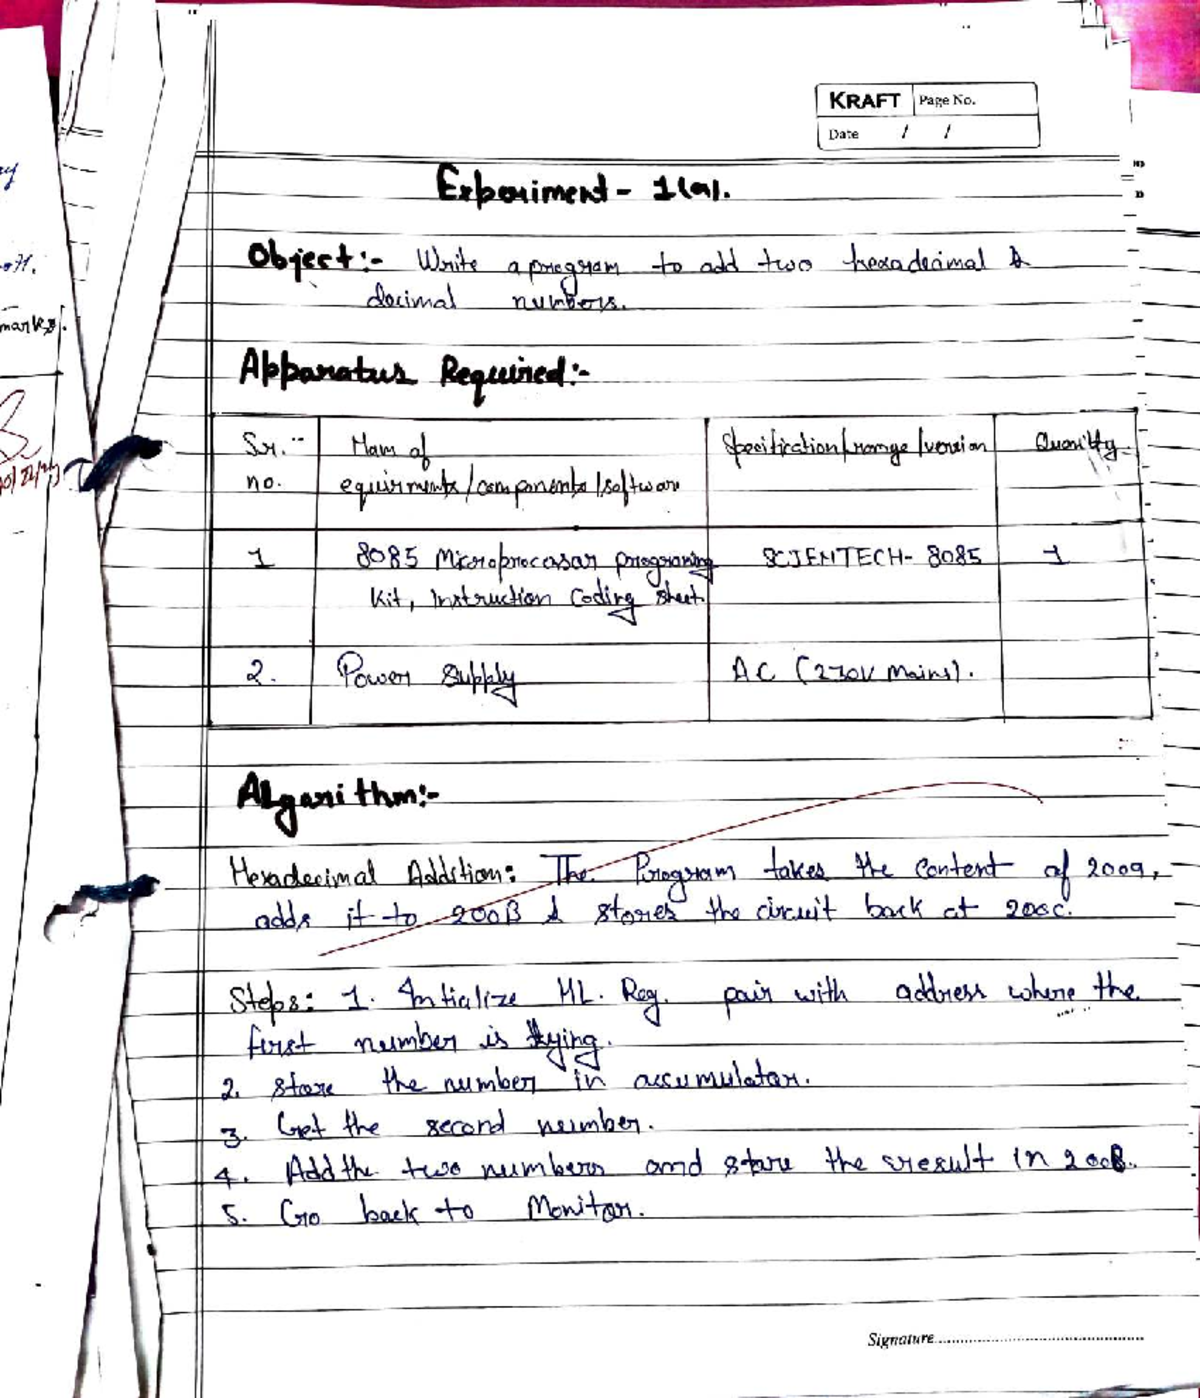 KRAFT Page No.
Date / /
Experiment - 1(a).
Object:- Write a program to add two hexadecimal &
decimal numbers.
mark
Apparatus Required:-
Sr. no. Nam of equirments/components/software Specification/range/version Quantity
1 8085 Microprocessor programing Kit, Instruction Coding sheet SCIENTECH- 8085 1
2. Power Supply AC (230V mains).
Algorithm:-
Hexadecimal Addition: The Program takes the content of 2009,
adds it to 200B & stores the circuit back at 200C.
Steps: 1. Intialize HL. Reg. pair with address where the
first number is lying.
2. store the number in accumulator.
3. Get the second number.
4. Add the two numbers and store the result in 200B.
5. Go back to Monitor.
Signature